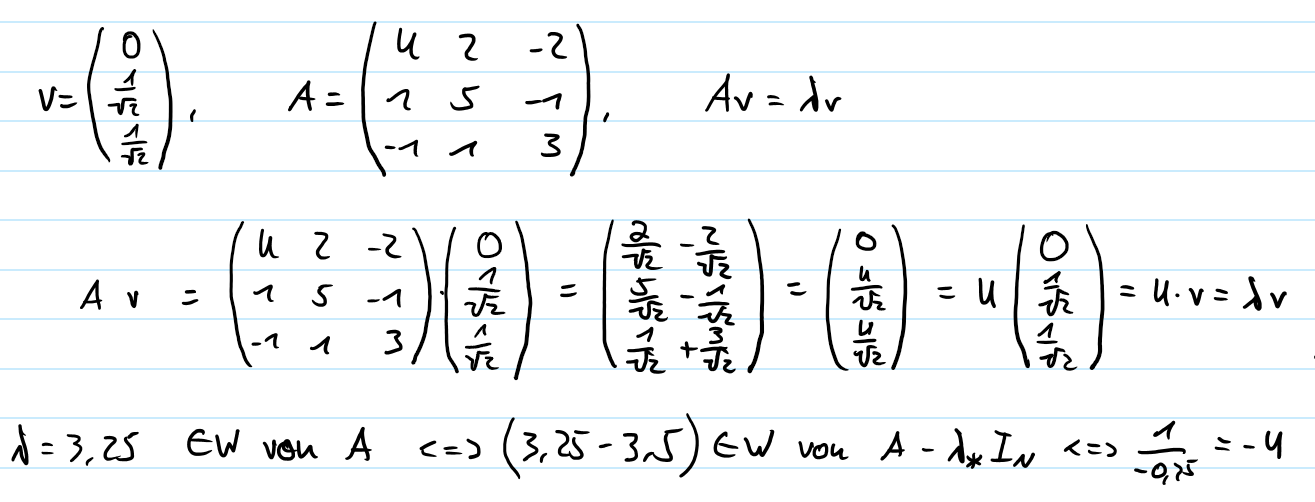 v = (0; 1/√2; 1/√2), A = (4 2 -2; 1 5 -1; -1 1 3), Av = λv
A v = (4 2 -2; 1 5 -1; -1 1 3) · (0; 1/√2; 1/√2) = (2/√2 - 2/√2; 5/√2 - 1/√2; 1/√2 + 3/√2) = (0; 4/√2; 4/√2) = 4 (0; 1/√2; 1/√2) = 4·v = λv
λ = 3,25 EW von A <=> (3,25 - 3,5) EW von A - λ_* I_N <=> 1/-0,25 = -4